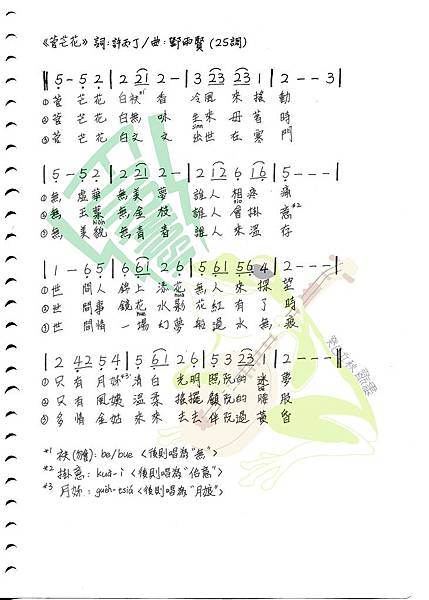 《菅芒花》 詞:許丙丁/曲:鄧雨賢 (25調)
‖ 5 - 5 2 | 2 21 2 - | 3 23 23 1 | 2 - - 3 |
①菅 芒 花 白袂*1 香 冷風 來 搖 動
②菅 芒 花 白無 味 生來 毋著 時
③菅 芒 花 白文 文 出世 在 寒 門
| 5 - 5 2 | 2 21 2 - | 2 12 6 16 | 5 - - - |
①無 虛華 無美夢 誰人 相疼 痛
②無 玉葉 無金枝 誰人 會掛 意*2
③無 美貌 無青春 誰人 來溫 存
| 1 - 6 5 | 6 61 2 6 | 5 61 56 4 | 2 - - - |
①世 間人 錦上 添花 無人 來探 望
②世 間事 鏡花 水影 花紅 有了 時
③世 間情 一場 幻夢 船過 水無 痕
| 2 42 5 4 | 5 61 2 6 | 5 3 23 1 | 2 - - - ‖
①只有 月姊*3 清白 光明 照阮的 迷 夢
②只有 風姨 溫柔 搖擺 顧阮的 腰 肢
③多情 金姑 來來 去去 伴阮過 黃 昏
*1 袂(繪): be/bue <後則唱為"無">
*2 掛意: kuà-ì <後則唱為"佮意">
*3 月姊: gueh-tsiá <後則唱為"月娘">